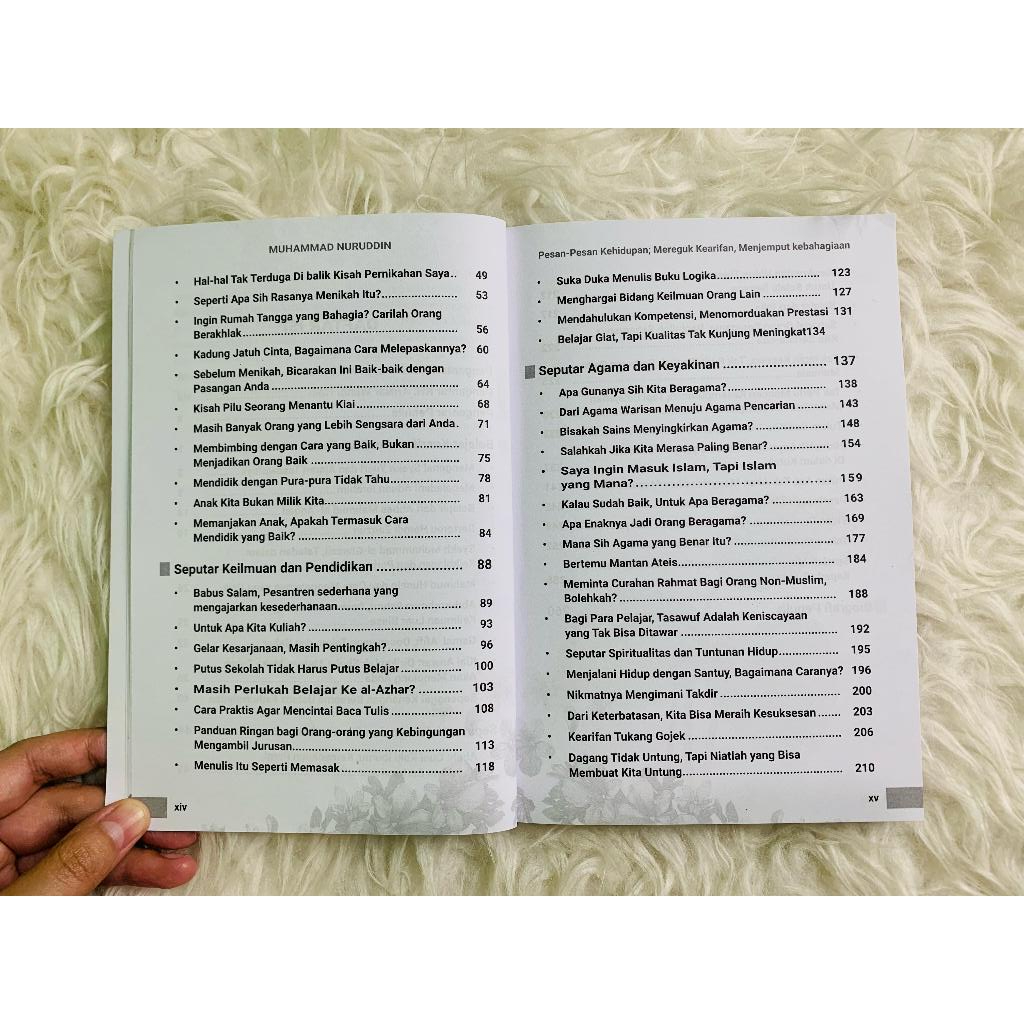 MUHAMMAD NURUDDIN
• Hal-hal Tak Terduga Di balik Kisah Pernikahan Saya.. 49
• Seperti Apa Sih Rasanya Menikah Itu?........................ 53
• Ingin Rumah Tangga yang Bahagia? Carilah Orang
Berakhlak.................................................................... 56
• Kadung Jatuh Cinta, Bagaimana Cara Melepaskannya? 60
• Sebelum Menikah, Bicarakan Ini Baik-baik dengan
Pasangan Anda ........................................................... 64
• Kisah Pilu Seorang Menantu Kiai................................ 68
• Masih Banyak Orang yang Lebih Sengsara dari Anda. 71
• Membimbing dengan Cara yang Baik, Bukan
Menjadikan Orang Baik ............................................... 75
• Mendidik dengan Pura-pura Tidak Tahu...................... 78
• Anak Kita Bukan Milik Kita.......................................... 81
• Memanjakan Anak, Apakah Termasuk Cara
Mendidik yang Baik? .................................................... 84
Seputar Keilmuan dan Pendidikan ...................... 88
• Babus Salam, Pesantren sederhana yang
mengajarkan kesederhanaan....................................... 89
• Untuk Apa Kita Kuliah?................................................ 93
• Gelar Kesarjanaan, Masih Pentingkah?....................... 96
• Putus Sekolah Tidak Harus Putus Belajar................... 100
• Masih Perlukah Belajar Ke al-Azhar? ........... 103
• Cara Praktis Agar Mencintai Baca Tulis ...................... 108
• Panduan Ringan bagi Orang-orang yang Kebingungan
Mengambil Jurusan..................................................... 113
• Menulis Itu Seperti Memasak...................................... 118
xiv
Pesan-Pesan Kehidupan; Mereguk Kearifan, Menjemput kebahagiaan
• Suka Duka Menulis Buku Logika................................. 123
• Menghargai Bidang Keilmuan Orang Lain .................. 127
• Mendahulukan Kompetensi, Menomorduakan Prestasi 131
• Belajar Giat, Tapi Kualitas Tak Kunjung Meningkat134
Seputar Agama dan Keyakinan .......................... 137
• Apa Gunanya Sih Kita Beragama?............................... 138
• Dari Agama Warisan Menuju Agama Pencarian ......... 143
• Bisakah Sains Menyingkirkan Agama? ....................... 148
• Salahkah Jika Kita Merasa Paling Benar? .................. 154
• Saya Ingin Masuk Islam, Tapi Islam
yang Mana? ................................................ 159
• Kalau Sudah Baik, Untuk Apa Beragama? .................. 163
• Apa Enaknya Jadi Orang Beragama? .......................... 169
• Mana Sih Agama yang Benar Itu? ............................... 177
• Bertemu Mantan Ateis................................................. 184
• Meminta Curahan Rahmat Bagi Orang Non-Muslim,
Bolehkah? .................................................................... 188
• Bagi Para Pelajar, Tasawuf Adalah Keniscayaan
yang Tak Bisa Ditawar ................................................. 192
• Seputar Spiritualitas dan Tuntunan Hidup................... 195
• Menjalani Hidup dengan Santuy, Bagaimana Caranya? 196
• Nikmatnya Mengimani Takdir ..................................... 200
• Dari Keterbatasan, Kita Bisa Meraih Kesuksesan ....... 203
• Kearifan Tukang Gojek ................................................ 206
• Dagang Tidak Untung, Tapi Niatlah yang Bisa
Membuat Kita Untung.................................................. 210
xv